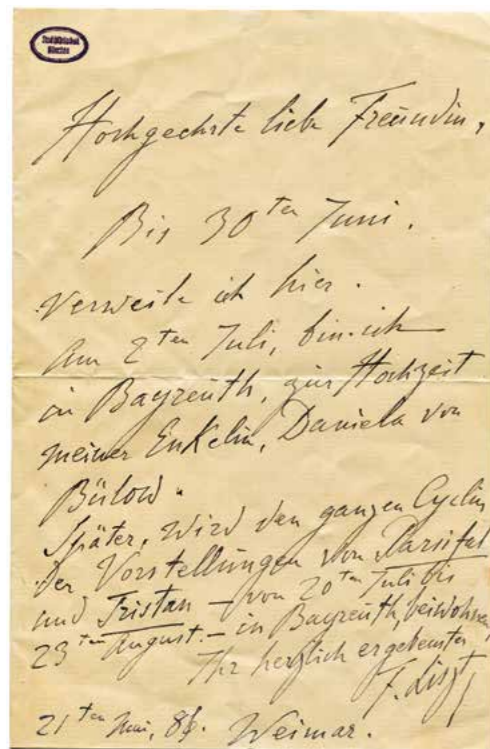 Stadtbibliothek
München
Hochgeehrte liebe Freundin,
Bis 30ten Juni.
Verweile ich hier.
Am 2ten Juli, bin ich
in Bayreuth, zur Hochzeit
meiner Enkelin, Daniela von
Bülow.
Später, wird den ganzen Cyclus
der Vorstellungen von Parsifal
und Tristan – von 20ten Juli bis
23ten August – in Bayreuth, beiwohnen,
Ihr herzlich ergebenster
F. Liszt
21ten Juni, 86. Weimar.